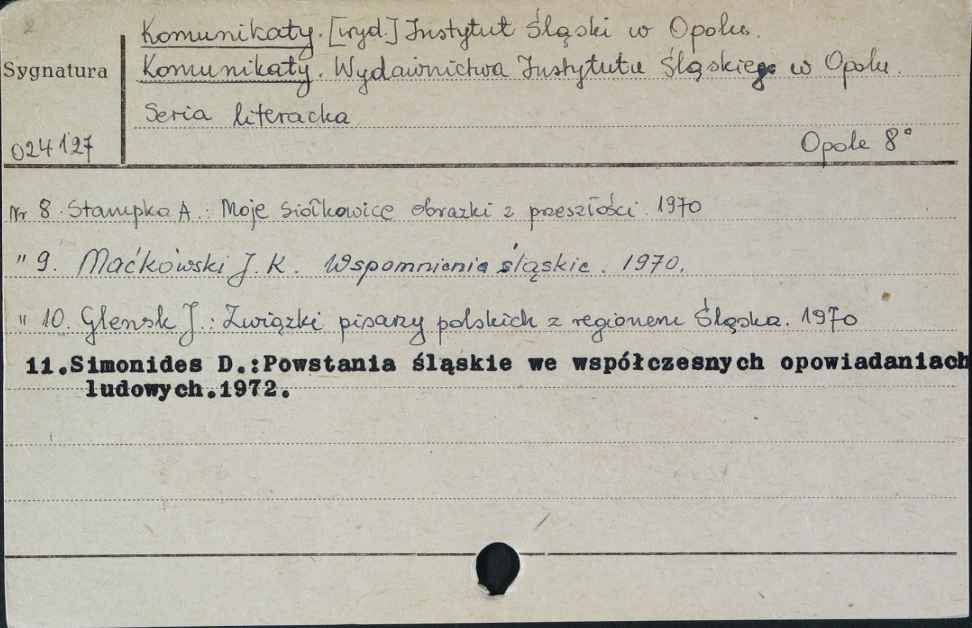 2
Komunikaty. [wyd.] Instytut Śląski w Opolu.
Sygnatura
Komunikaty. Wydawnictwa Instytutu Śląskiego w Opolu.
Seria literacka
024127
Opole 8°
Nr 8. Stampka A.: Moje Siołkowice obrazki z przeszłości. 1970
" 9. Maćkowski J. K. Wspomnienia śląskie. 1970.
" 10. Glensk J.: Związki pisarzy polskich z regionem Śląska. 1970
11.Simonides D.:Powstania śląskie we współczesnych opowiadaniach
ludowych.1972.